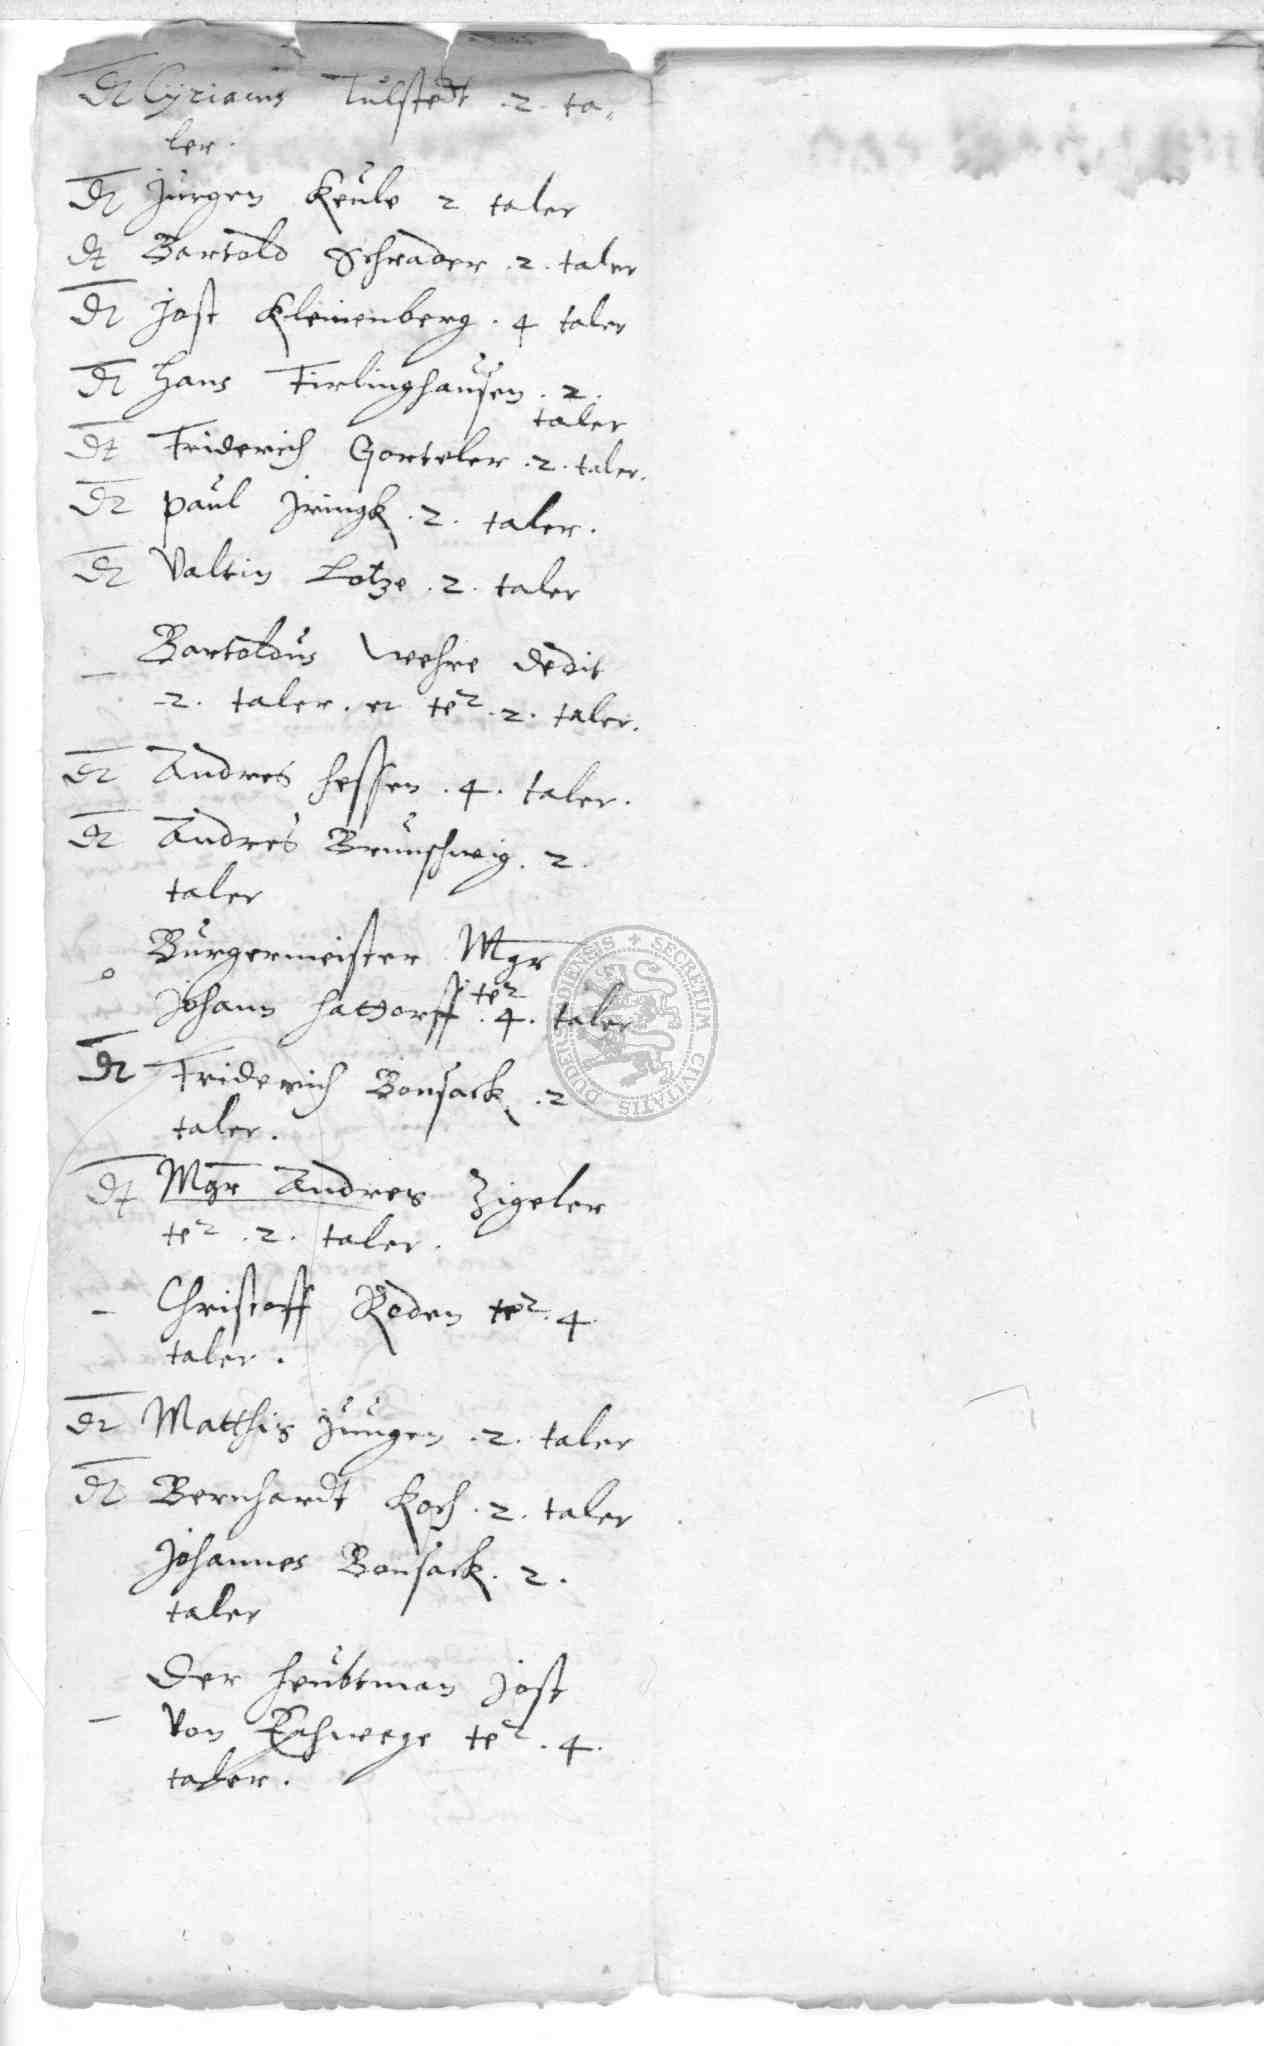 dt Cyriacus Tulstedt .2. ta-
ler.
dt Jurgen Keule 2 taler
dt Bartold Schrader .2. taler
dt Jost Kleinenberg . 4 taler
dt Hans Tirlinghausen . 2.
taler
dt Friderich Gorteler .2. taler.
dt Paul Iringk .2. taler.
dt Valtin Lotze .2. taler
Bartoldus Wehre dedit
2. taler. et te² .2. taler.
dt Andres Hessen .4. taler.
dt Andres Brunschwig. 2.
taler
Burgermeister Mgr
Johann Hattorff te² .4. taler
dt Friderich Bonsack .2
taler.
dt Mgr Andres Zigeler
te² .2. taler.
Christoff Roden te² .4
taler.
dt Matthis Jungen .2. taler
dt Bernhardt Koch .2. taler
Johannes Bonsack. 2.
taler
Der Heubtman Jost
von Eschwege te² .4.
taler.
SECRETUM CIVITATIS DUDERSTADIENSIS